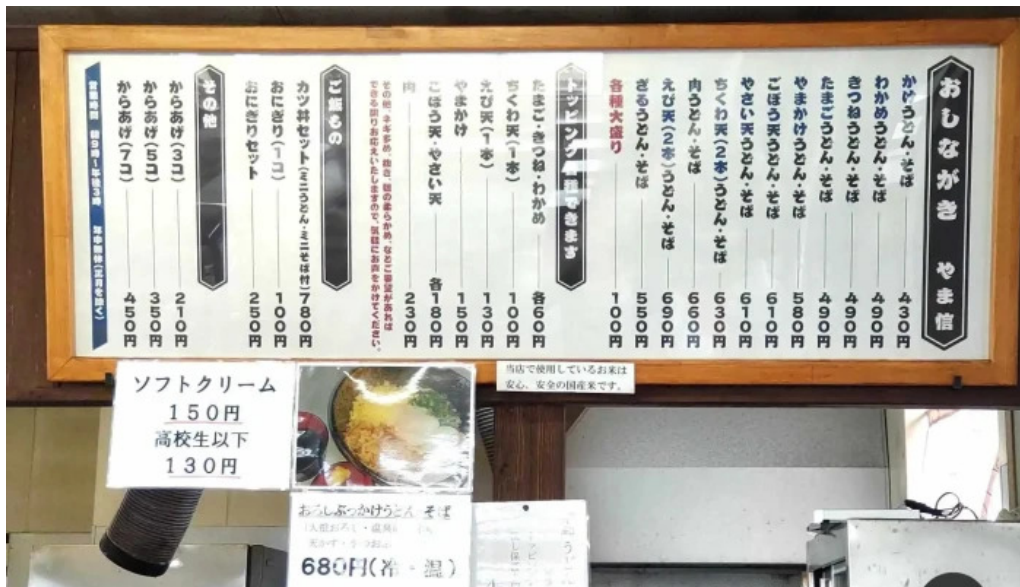 おしながき やま信
かけうどん・そば 430円
わかめうどん・そば 490円
きつねうどん・そば 490円
たまごうどん・そば 490円
やまかけうどん・そば 580円
ごぼう天うどん・そば 610円
やさい天うどん・そば 610円
ちくわ天(2本)うどん・そば 630円
肉うどん・そば 660円
えび天(2本)うどん・そば 690円
ざるうどん・そば 550円
各種大盛り 100円
トッピング各種できます
たまご・きつね・わかめ 各60円
ちくわ天(1本) 100円
えび天(1本) 130円
やまかけ 150円
ごぼう天・やさい天 各180円
肉 230円
その他、ネギ多め、麺の柔らかめ、などご要望があれば
できる限りお応えいたしますので、気軽にお声をかけてください。
ご飯もの
カツ丼セット(ミニうどん・ミニそば付) 780円
おにぎり(1コ) 100円
おにぎりセット 250円
その他
からあげ(3コ) 210円
からあげ(5コ) 350円
からあげ(7コ) 450円
営業時間 朝9時~午後3時 年中無休(正月を除く)
当店で使用しているお米は
安心、安全の国産米です。
ソフトクリーム
150円
高校生以下
130円
おろしぶっかけうどん そば
680円(冷・温)